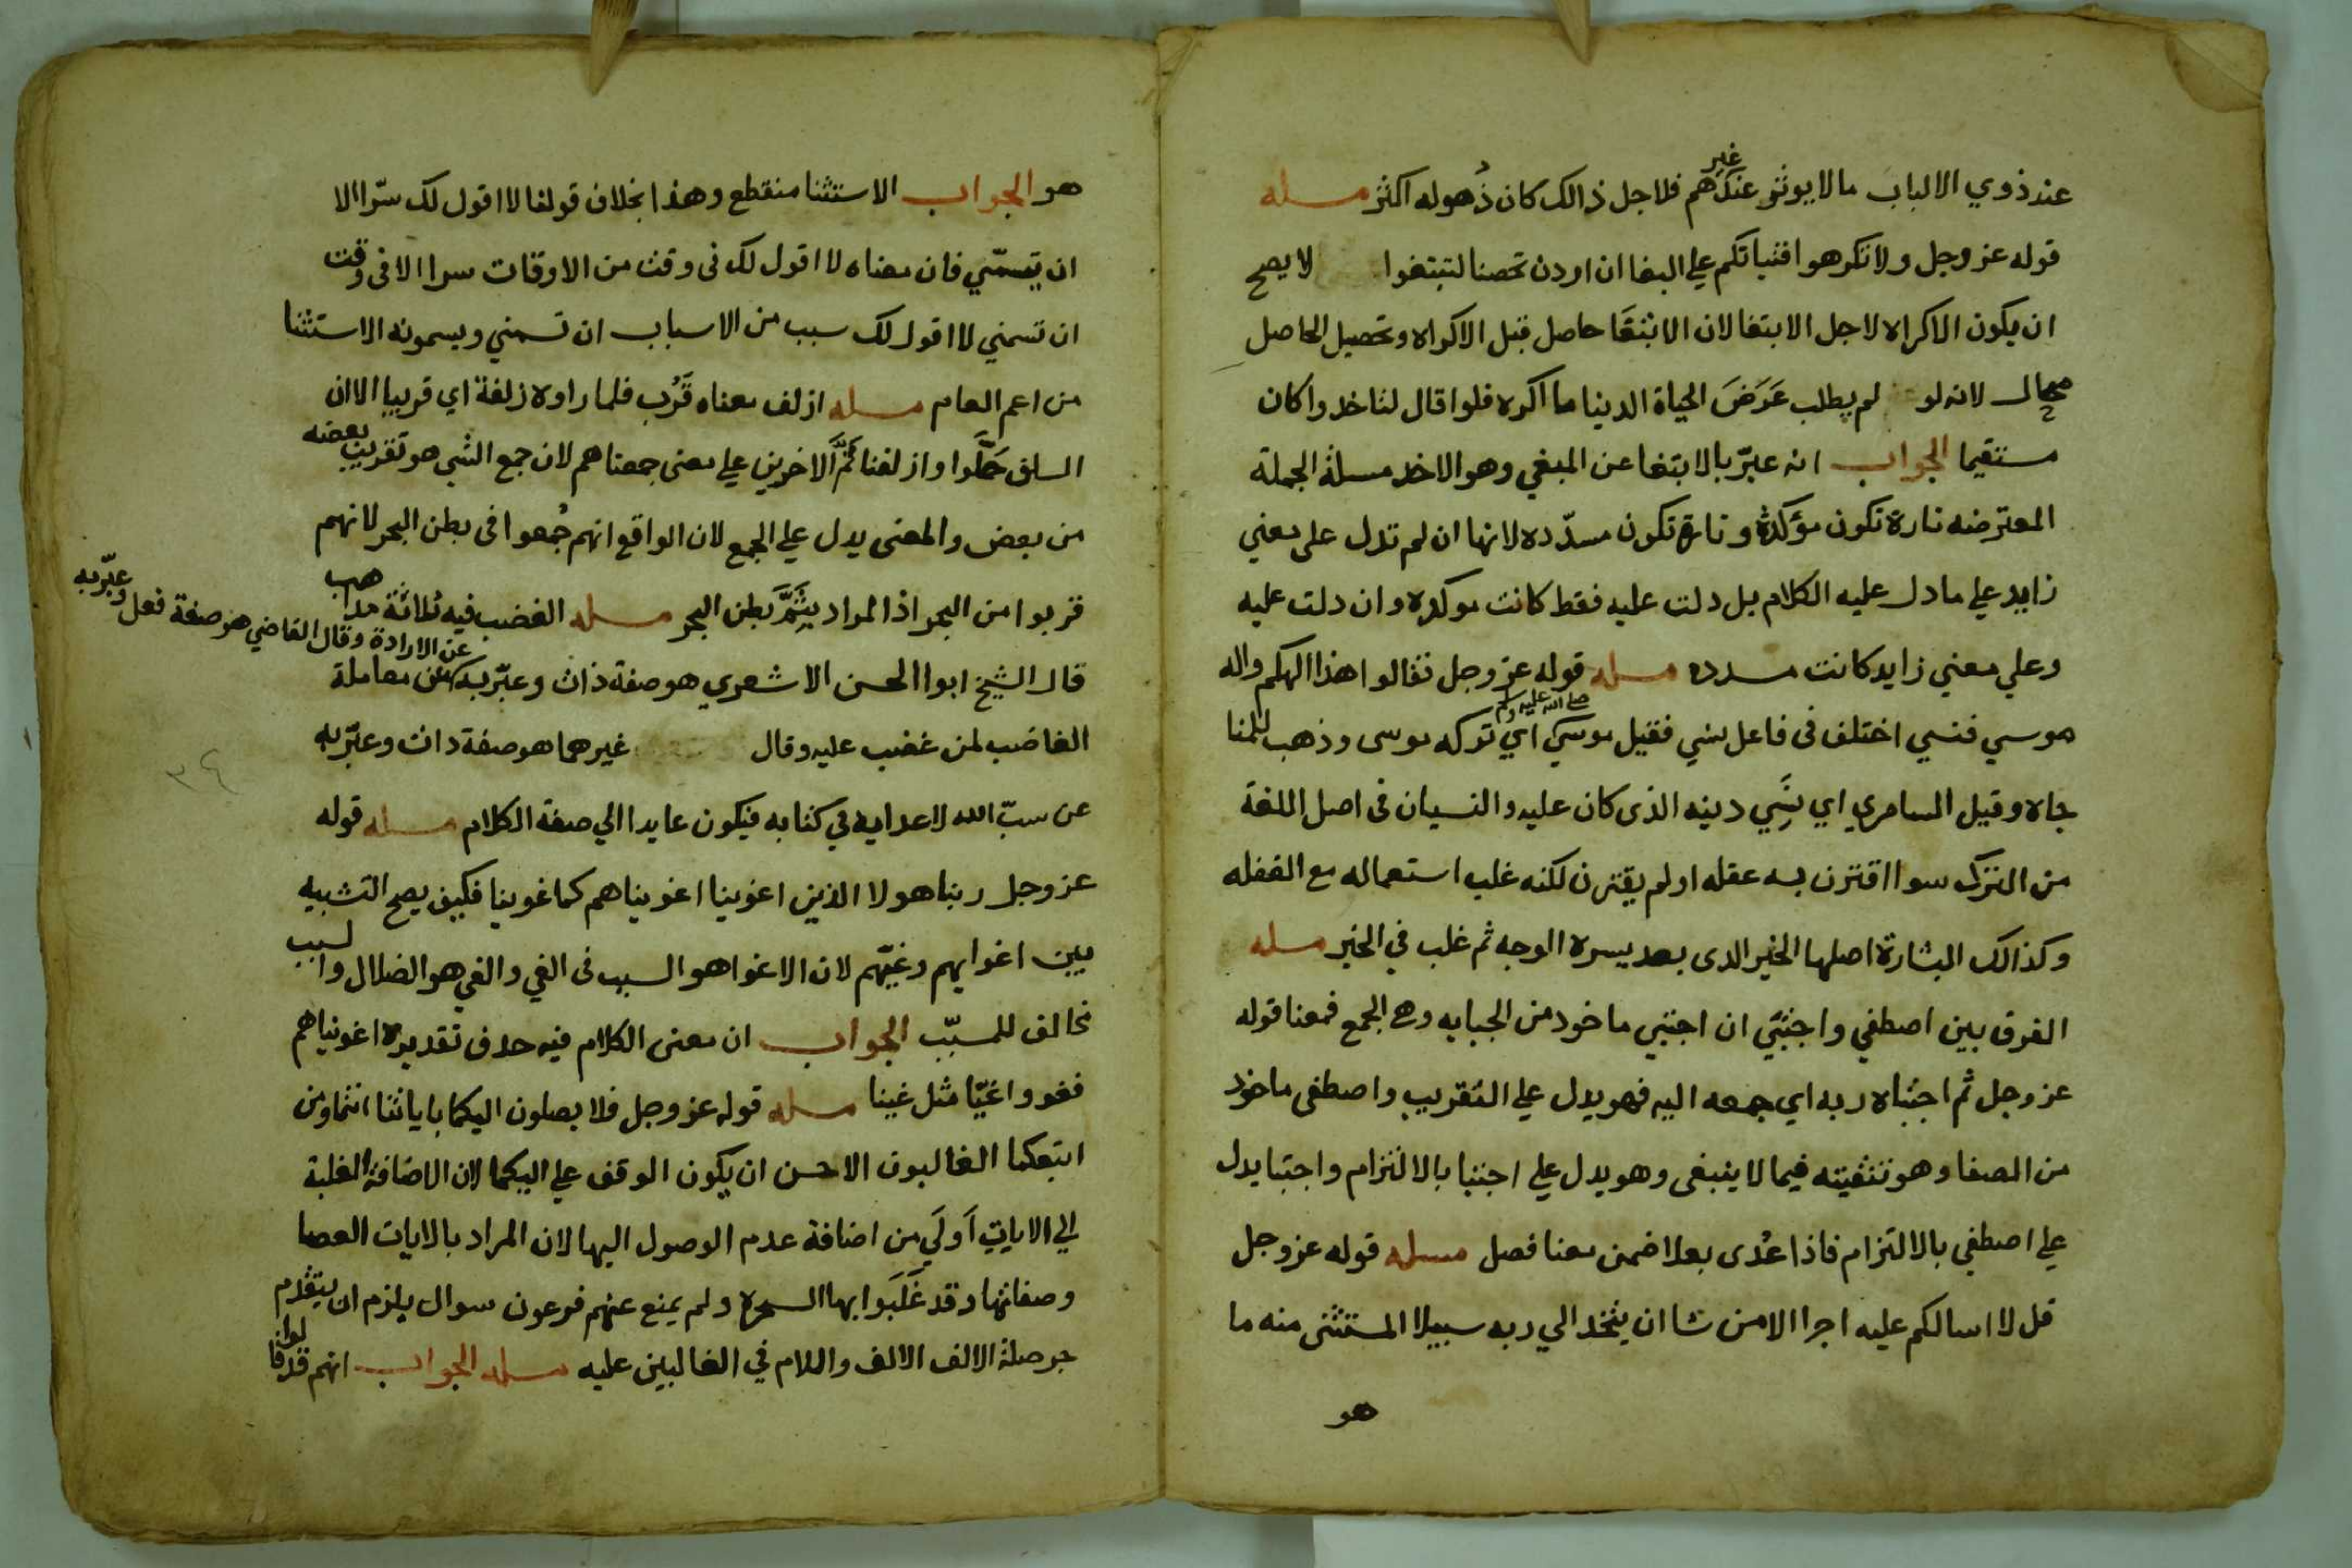 عند ذوي الالباب مالا يوثر عند غيرهم فلاجل ذالك كان ذهوله اكثر مسله
قوله عز وجل ولا تكرهوا فتياتكم علي البغا ان اردن تحصنا لتبتغوا لا يصح
ان يكون الاكراه لاجل الابتغا لان الابتغا حاصل قبل الاكراه وتحصيل الحاصل
محال لانه لو لم يطلب عَرَضَ الحياة الدينا ما اكره فلو قال لتاخدوا كان
مستقيما الجواب انه عبّر بالابتغا عن المبغي وهو الاخد مسلة الجملة
المعترضه تارة تكون مؤكدة وتارة تكون مسدّده لانها ان لم تدل على معني
زايد علي ما دل عليه الكلام بل دلت عليه فقط كانت موكده وان دلت عليه
وعلي معني زايد كانت مسدده مسله قوله عز وجل فقالوا هذا الهكم واله
موسي فنسي اختلف فى فاعل نسي فقيل موسي صلى الله عليه وسلم اي تركه موسى وذهب للمنا
جاه وقيل السامري اي نَسِي دينه الذى كان عليه والنسيان فى اصل اللغة
من الترك سوا اقترن به عقله او لم يقترن لكنه غلب استعماله مع الغفله
وكذالك البشارة اصلها الخبر الدى بعد يسره الوجه ثم غلب في الخير مسله
الفرق بين اصطفي واجتبي ان اجتبي ماخود من الجبايه وهى الجمع فمعنا قوله
عز وجل ثم اجتباه ربه اي جمعه اليه فهو يدل علي التقريب واصطفى ماخود
من الصفا وهو تنقيته فيما لا ينبغى وهو يدل علي اجتبا بالالتزام واجتبا يدل
علي اصطفي بالالتزام فاذا عُدى بعلا ضمن معنا فصل مسله قوله عز وجل
قل لا اسالكم عليه اجرا الا من شا ان يتخد الي ربه سبيلا المستثنى منه ما
هو
هو الجواب الاستثنا منقطع وهذا بخلاف قولنا لا اقول لك سرّا الا
ان تسمّي فان معناه لا اقول لك فى وقت من الاوقات سرا الا فى وقت
ان تسمني لا اقول لك سبب من الاسباب ان تسمني ويسمونه الاستثنا
من اعم العام مسله ازلف معناه قَرُب فلما راوه زلفة اي قريبا الا ان
السلف حَمَلَوا وازلفنا ثَمَّ الاخرين علي معنى جمعناهم لان جمع الشي هو تقريب بعضه
من بعض والمعنى يدل علي الجمع لان الواقع انهم جُمعوا فى بطن البحر لانهم
قربوا من البحر اذ المراد بِثَمَّ بطن البحر مسله الغضب فيه ثلاثة مداهب
قال الشيخ ابوا الحسن الاشعري هو صفة ذات وعبّر به عن الارادة وقال القاضي هو صفة فعل وعبّر به عن معاملة
الغاضب لمن غضب عليه وقال غيرهما هو صفة دات وعبّر به
عن سبّ الله لاعدايه في كتابه فيكون عايدا الي صفة الكلام مسله قوله
عز وجل ربنا هولا الذين اغوينا اغويناهم كما غوينا فكيف يصح التشبيه
بين اغوايهم وغيّهم لان الاغوا هو السبب فى الغي والغي هو الضلال والسبب
مخالف للمسبّب الجواب ان معنى الكلام فيه حدف تقديره اغويناهم
فغووا غيّا مثل غينا مسله قوله عز وجل فلا يصلون اليكما باياتنا انتما ومن
اتبعكما الغالبون الاحسن ان يكون الوقف علي اليكما لان الاضافة الغلبة
الي الايات اَولَي من اضافة عدم الوصول اليها لان المراد بالايات العصا
وصفاتها وقد غَلَبَوا بها السحره ولم يمنع عنهم فرعون سوال يلزم ان يتقدم
جر صلة الالف الالف واللام في الغالبين عليه مسله الجواب انهم قد قالوا